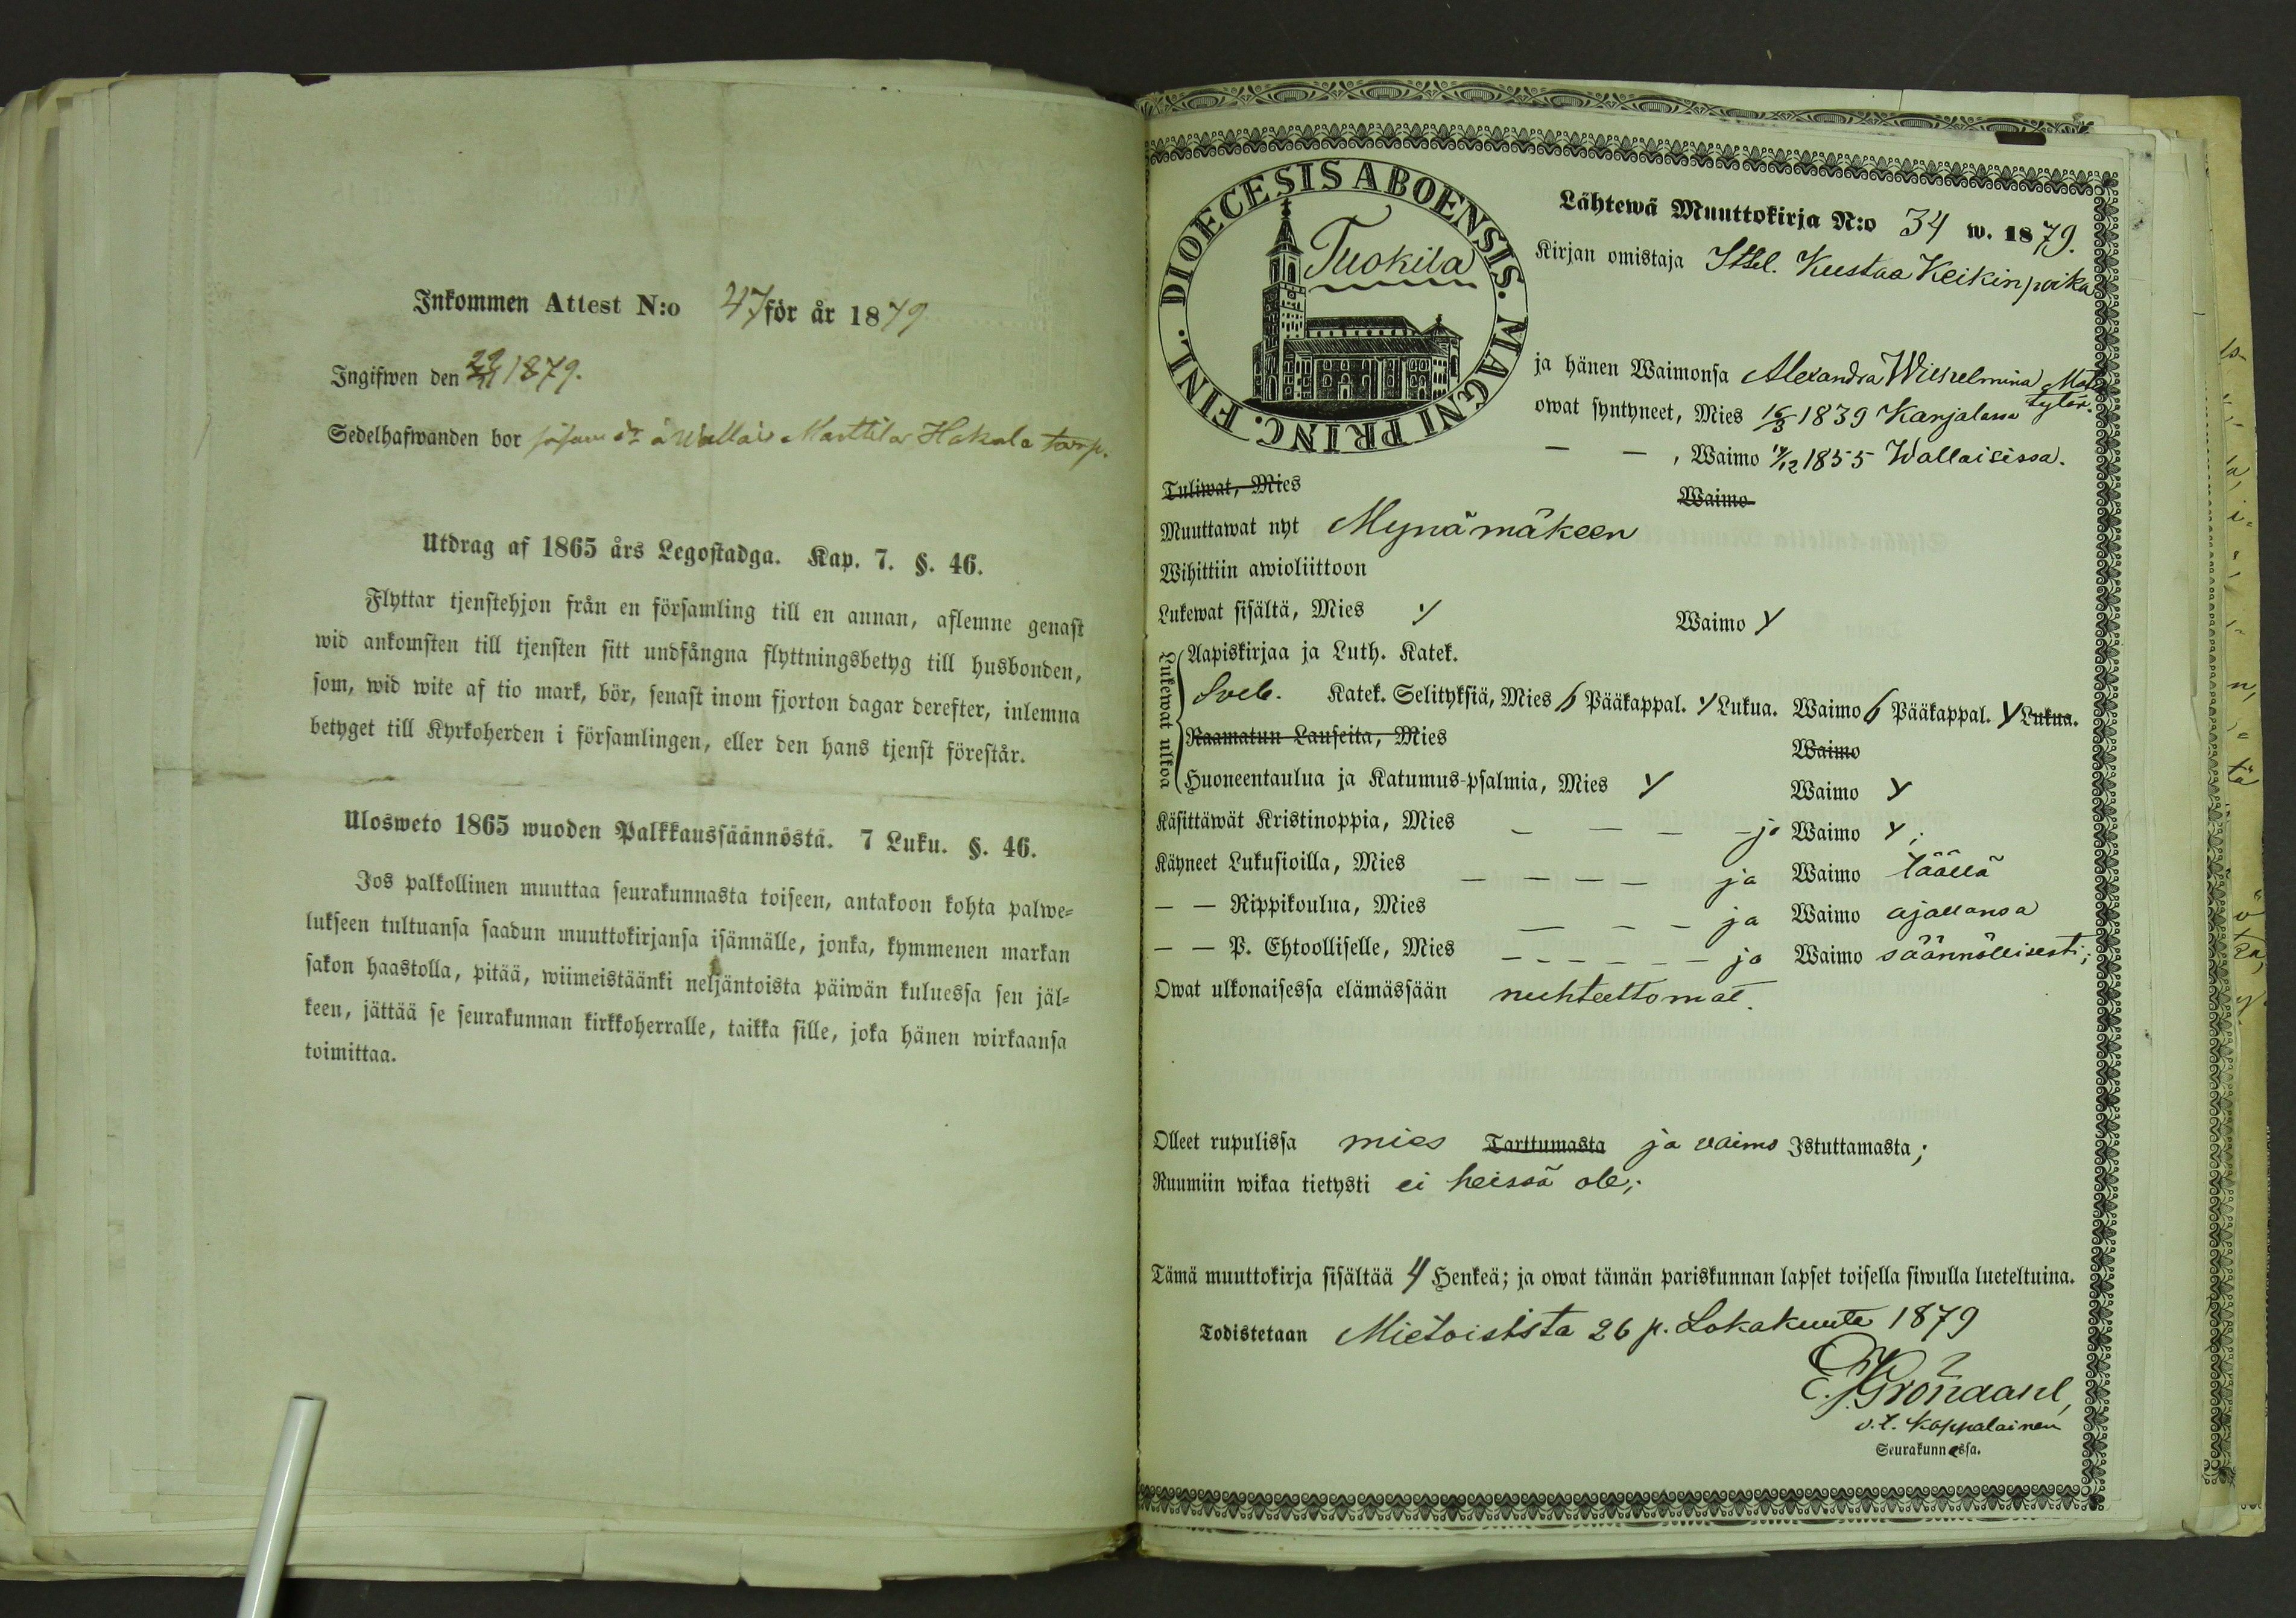 Inkommen Attest N:o 47 för år 1879
Ingifwen den 29/11 1879.
Sedelhafwanden bor å Wallais Marttila Hakala torp.
Utdrag af 1865 års Legostadga. Kap. 7. §. 46.
Flyttar tjenstehjon från en församling till en annan, aflemne genast
wid ankomsten till tjensten sitt undfångna flyttningsbetyg till husbonden,
som, wid wite af tio mark, bör, senast inom fjorton dagar derefter, inlemna
betyget till Kyrkoherden i församlingen, eller den hans tjenst förestår.
Ulosweto 1865 wuoden Palkkaussäännöstä. 7 Luku. §. 46.
Jos palkollinen muuttaa seurakunnasta toiseen, antakoon kohta palwe-
lukseen tultuansa saadun muuttokirjansa isännälle, jonka, kymmenen markan
sakon haastolla, pitää, wiimeistäänki neljäntoista päiwän kuluessa sen jäl-
keen, jättää se seurakunnan kirkkoherralle, taikka sille, joka hänen wirkaansa
toimittaa.
DIOECESIS ABOENSIS. MAGNI PRINC. FINL.
Tuokila
Lähtewä Muuttokirja N:o 34 w. 1879.
Kirjan omistaja Itsel. Kustaa Keikinpoika
ja hänen Waimonsa Alexandra Wilhelmina Mat.
tytär.
owat syntyneet, Mies 16/3 1839 Karjalassa
— — , Waimo 1855 Wallaisissa.
Tuliwat, Mies Waimo
Muuttawat nyt Mynämäkeen
Wihittiin awioliittoon
Lukewat sisältä, Mies y Waimo y
Lukewat ulkoa
Aapiskirjaa ja Luth. Katek.
Sveb. Katek. Selityksiä, Mies 6 Pääkappal. y Lukua. Waimo 6 Pääkappal. y Lukua.
Raamatun Lauseita, Mies Waimo
Huoneentaulua ja Katumus-psalmia, Mies y Waimo y
Käsittäwät Kristinoppia, Mies — — — — ja Waimo y;
Käyneet Lukusioilla, Mies — — — — ja Waimo täällä
— — Rippikoulua, Mies — — — ja Waimo ajallansa
— — P. Ehtoolliselle, Mies — — — — — — ja Waimo säännöllisesti;
Owat ulkonaisessa elämässään nuhteettomat.
Olleet rupulissa mies Tarttumasta ja vaimo Istuttamasta;
Ruumiin wikaa tietysti ei heissä ole;
Tämä muuttokirja sisältää 4 Henkeä; ja owat tämän pariskunnan lapset toisella siwulla lueteltuina.
Todistetaan Mietoisista 26 p. Lokakuuta 1879
v.t. Kappalainen
Seurakunnassa.